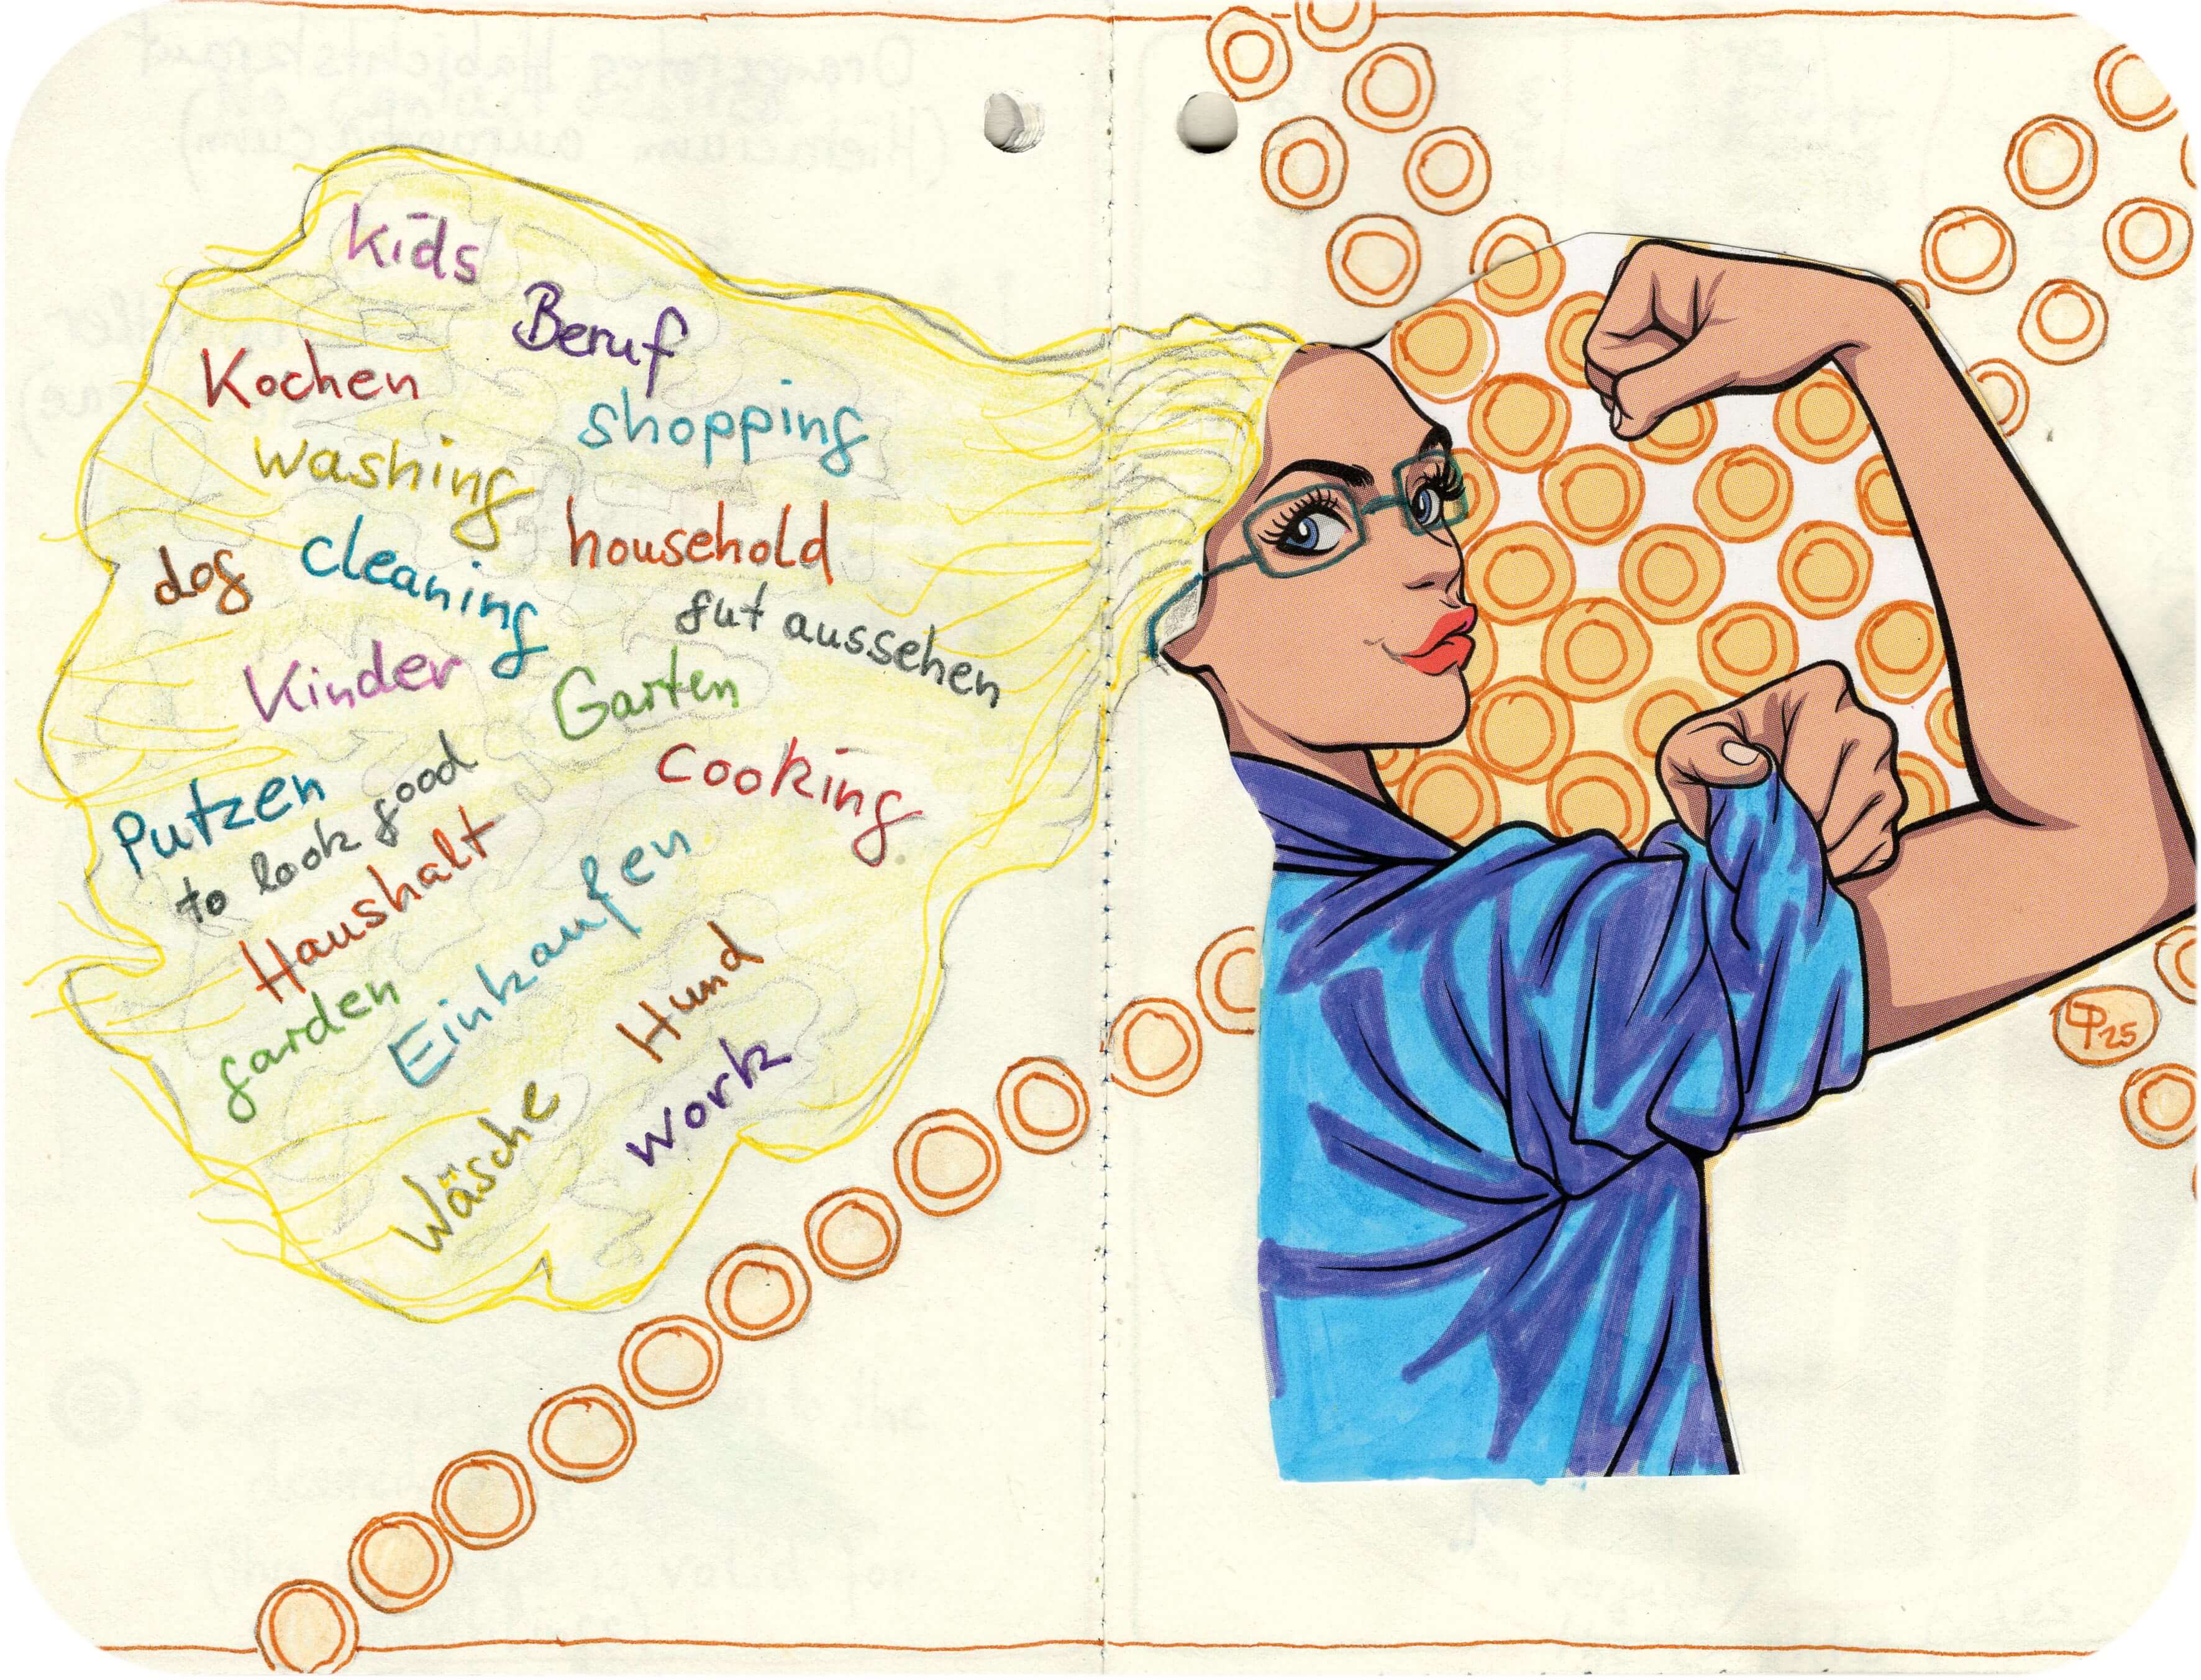 Kids
Beruf
Kochen
shopping
washing
household
dog
cleaning
gut aussehen
Kinder
Garten
Putzen
to look good
cooking
Haushalt
Einkaufen
garden
Hund
work
Wäsche
25